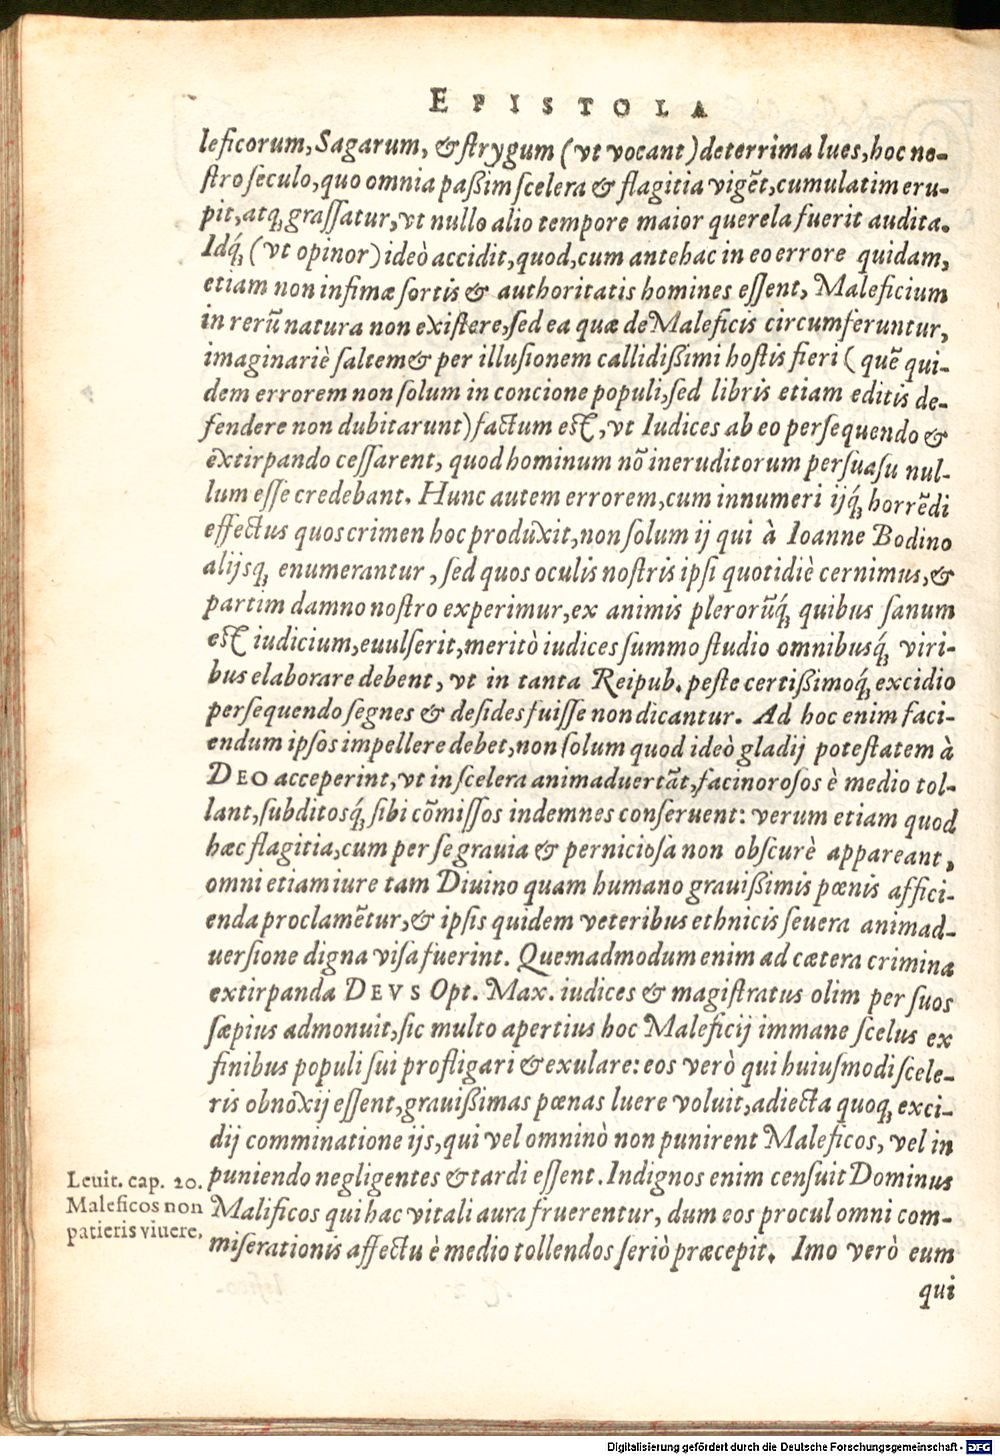 EPISTOLA
leficorum, Sagarum, & strygum (vt vocant) deterrima lues, hoc no-
stro seculo, quo omnia paßim scelera & flagitia vigẽt, cumulatim eru-
pit, atq; grassatur, vt nullo alio tempore maior querela fuerit audita.
Idq́; (vt opinor) ideò accidit, quod, cum antehac in eo errore quidam,
etiam non infimæ sortis & authoritatis homines essent, Maleficium
in rerũ natura non existere, sed ea quæ de Maleficis circumferuntur,
imaginariè saltem & per illusionem callidißimi hostis fieri (quẽ qui-
dem errorem non solum in concione populi, sed libris etiam editis de-
fendere non dubitarunt) factum est, vt Iudices ab eo persequendo &
extirpando cessarent, quod hominum nõ ineruditorum persuasu nul-
lum esse credebant. Hunc autem errorem, cum innumeri ijq́; horrẽdi
effectus quos crimen hoc produxit, non solum ij qui à Ioanne Bodino
alijsq; enumerantur, sed quos oculis nostris ipsi quotidiè cernimus, &
partim damno nostro experimur, ex animis plerorũq́; quibus sanum
est iudicium, euulserit, meritò iudices summo studio omnibusq́; viri-
bus elaborare debent, vt in tanta Reipub. peste certißimoq́; excidio
persequendo segnes & desides fuisse non dicantur. Ad hoc enim faci-
endum ipsos impellere debet, non solum quod ideò gladij potestatem à
DEO acceperint, vt in scelera animaduertãt, facinorosos è medio tol-
lant, subditosq́; sibi cõmissos indemnes conseruent: verum etiam quod
hæc flagitia, cum per se grauia & perniciosa non obscurè appareant,
omni etiam iure tam Diuino quam humano grauißimis pœnis affici-
enda proclamẽtur, & ipsis quidem veteribus ethnicis seuera animad-
uersione digna visa fuerint. Quemadmodum enim ad cætera crimina
extirpanda DEVS Opt. Max. iudices & magistratus olim per suos
sæpius admonuit, sic multo apertius hoc Maleficij immane scelus ex
finibus populi sui profligari & exulare: eos verò qui huiusmodi scele-
ris obnoxij essent, grauißimas pœnas luere voluit, adiecta quoq; exci-
dij comminatione ijs, qui vel omninò non punirent Maleficos, vel in
puniendo negligentes & tardi essent. Indignos enim censuit Dominus
Malificos qui hac vitali aura fruerentur, dum eos procul omni com-
miserationis affectu è medio tollendos seriò præcepit. Imo verò eum
qui
Leuit. cap. 20.
Maleficos non
patieris viuere,
Digitalisierung gefördert durch die Deutsche Forschungsgemeinschaft - DFG